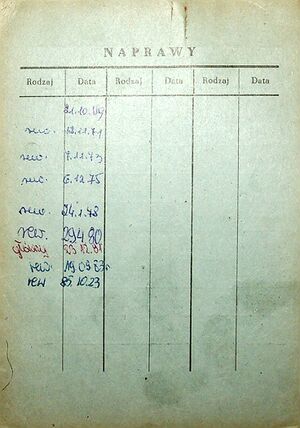 NAPRAWY
Rodzaj Data Rodzaj Data Rodzaj Data
21.10.69
rew. 12.11.71
rew. 7.11.73
rew. 6.12.75
rew. 24.1.78
rew. 29.4.80
główny 23.12.81
rew. 19.09.83
rew 85.10.23